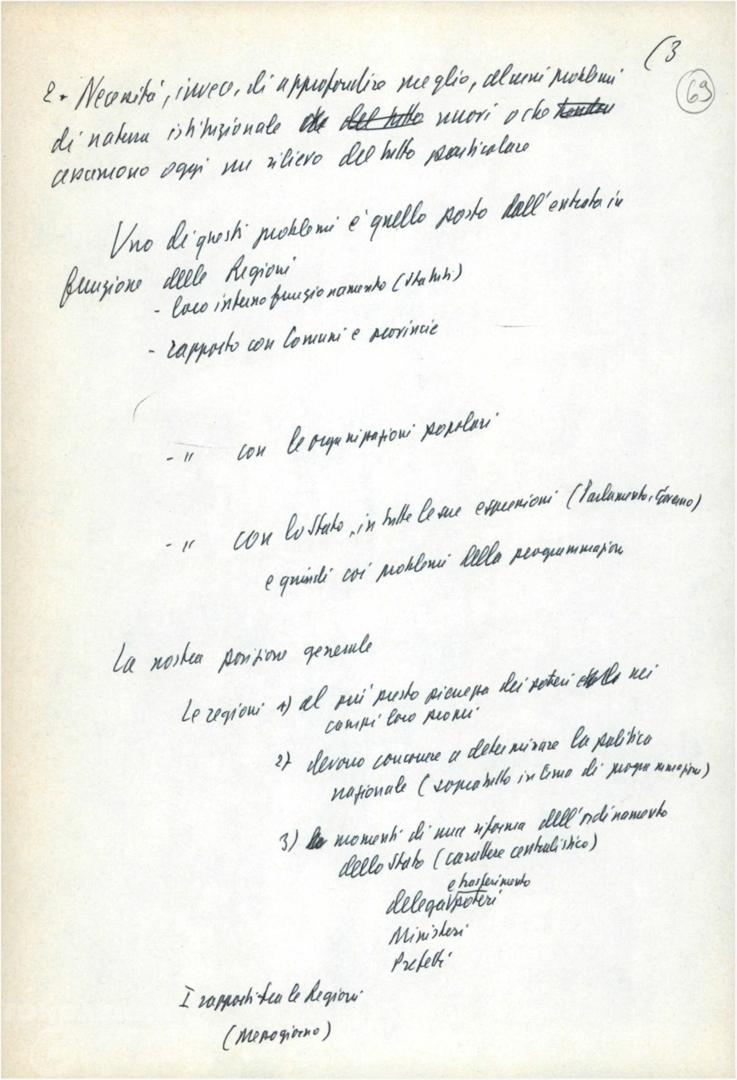 (3
69
2. Necessità, invece, di approfondire meglio, alcuni problemi
di natura istituzionale che del tutto nuovi o che
assumono oggi un rilievo del tutto particolare
Uno di questi problemi è quello posto dall'entrata in
funzione delle Regioni
- loro interno funzionamento (statuti)
- rapporto con Comuni e provincie
- " con le organizzazioni popolari
- " con lo Stato, in tutte le sue espressioni (Parlamento, Governo)
e quindi coi problemi della programmazione
La nostra posizione generale
Le regioni 1) al più presto pienezza dei poteri nei
campi loro propri
2) devono concorrere a determinare la politica
nazionale (soprattutto in tema di programmazione)
3) momenti di una riforma dell'ordinamento
dello Stato (carattere centralistico)
e trasferimento
delega poteri
Ministeri
Prefetti
I rapporti tra le Regioni
(Mezzogiorno)